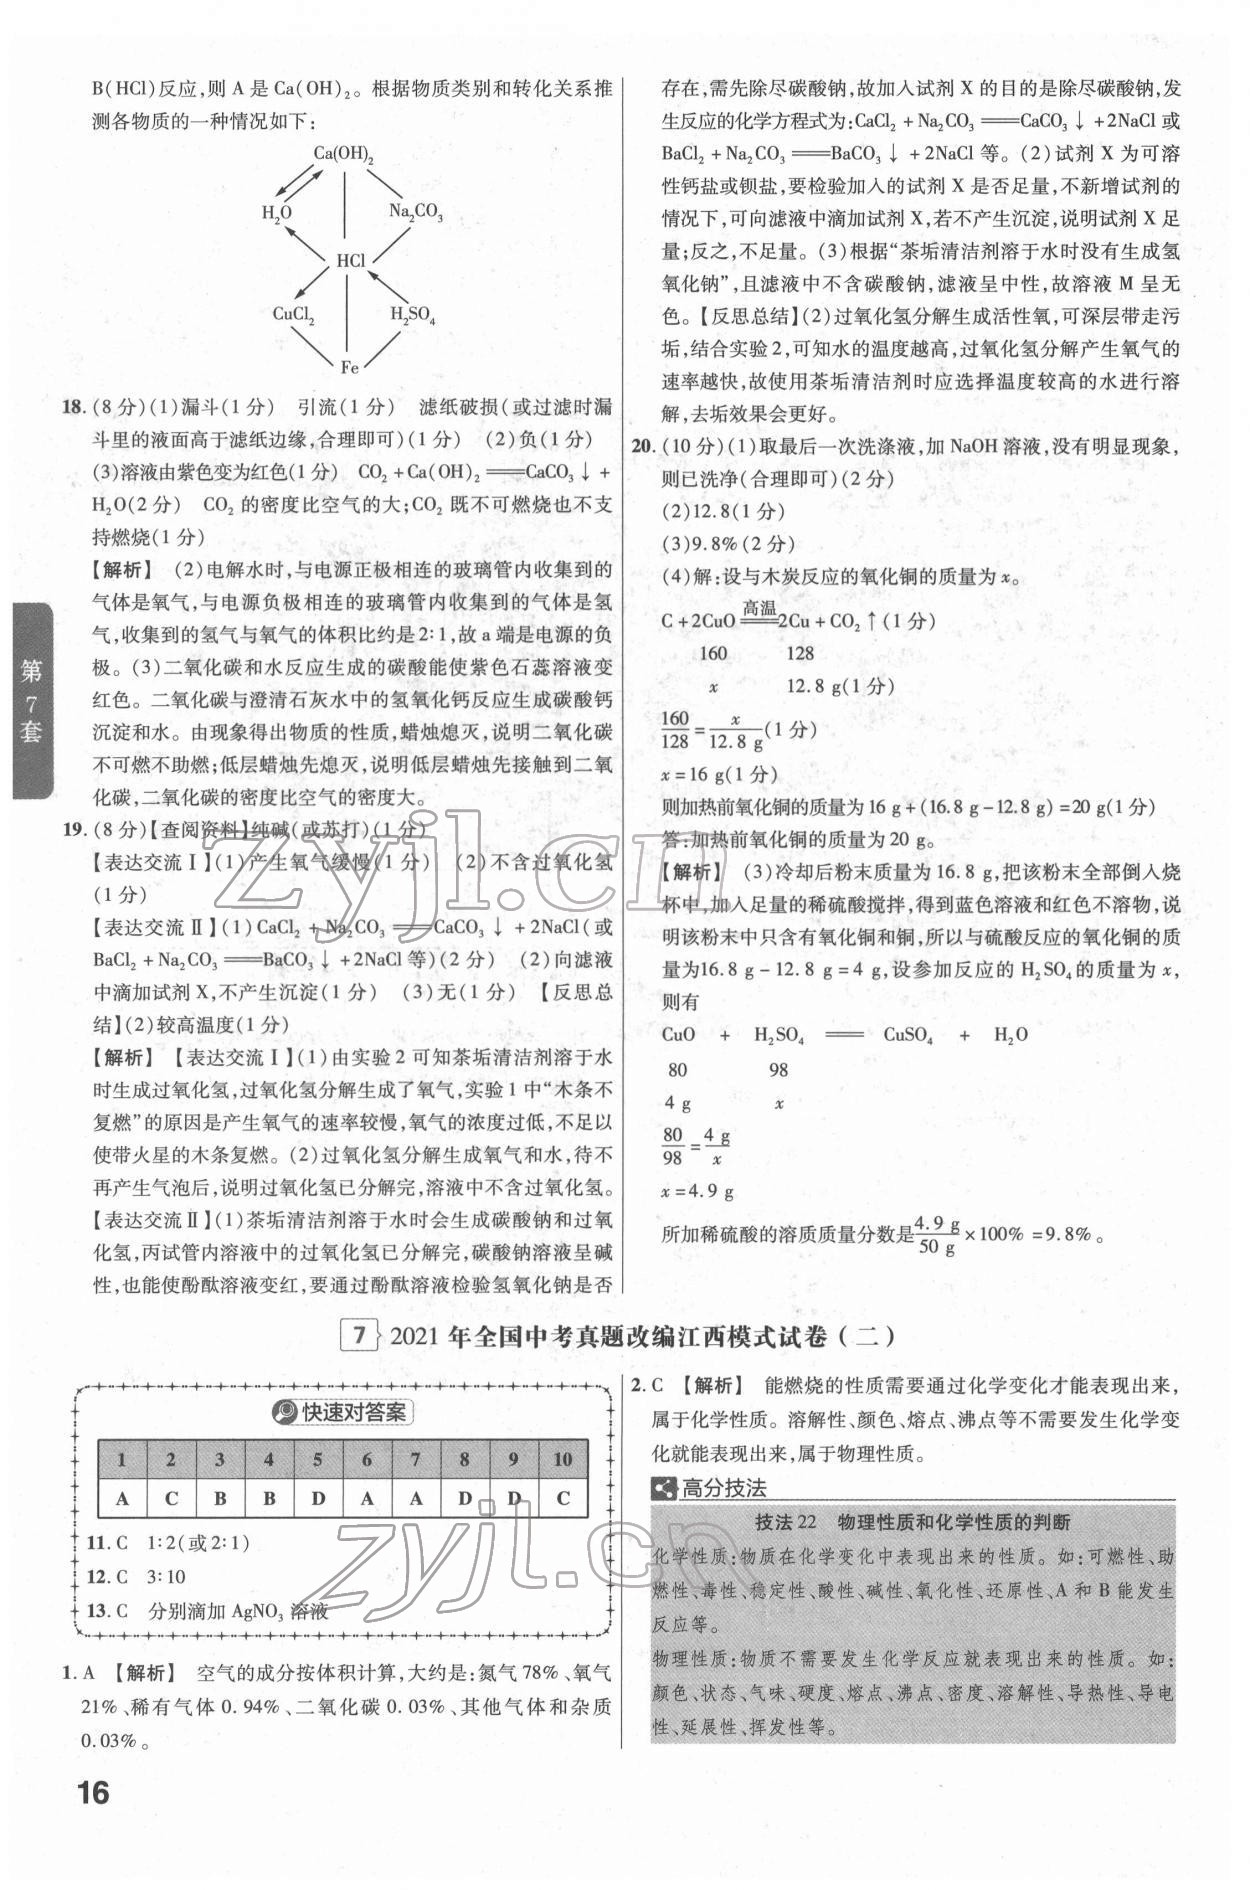 B(HCl)反应,则 A 是 Ca(OH)₂。根据物质类别和转化关系推
测各物质的一种情况如下:
Ca(OH)₂
H₂O
Na₂CO₃
HCl
CuCl₂
H₂SO₄
Fe
18. (8 分)(1)漏斗(1 分) 引流(1 分) 滤纸破损(或过滤时漏
斗里的液面高于滤纸边缘,合理即可)(1 分) (2)负(1 分)
(3)溶液由紫色变为红色(1 分) CO₂+Ca(OH)₂══CaCO₃↓+
H₂O(2 分) CO₂ 的密度比空气的大;CO₂ 既不可燃烧也不支
持燃烧(1 分)
【解析】 (2)电解水时,与电源正极相连的玻璃管内收集到的
气体是氧气,与电源负极相连的玻璃管内收集到的气体是氢
气,收集到的氢气与氧气的体积比约是2∶1,故 a 端是电源的负
极。(3)二氧化碳和水反应生成的碳酸能使紫色石蕊溶液变
红色。二氧化碳与澄清石灰水中的氢氧化钙反应生成碳酸钙
沉淀和水。由现象得出物质的性质,蜡烛熄灭,说明二氧化碳
不可燃不助燃;低层蜡烛先熄灭,说明低层蜡烛先接触到二氧
化碳,二氧化碳的密度比空气的密度大。
19. (8 分)【查阅资料】纯碱(或苏打)(1 分)
【表达交流Ⅰ】(1)产生氧气缓慢(1 分) (2)不含过氧化氢
(1 分)
【表达交流Ⅱ】(1)CaCl₂+Na₂CO₃══CaCO₃↓+2NaCl(或
BaCl₂+Na₂CO₃══BaCO₃↓+2NaCl 等)(2 分) (2)向滤液
中滴加试剂 X,不产生沉淀(1 分) (3)无(1 分) 【反思总
结】(2)较高温度(1 分)
【解析】 【表达交流Ⅰ】(1)由实验 2 可知茶垢清洁剂溶于水
时生成过氧化氢,过氧化氢分解生成了氧气,实验 1 中“木条不
复燃”的原因是产生氧气的速率较慢,氧气的浓度过低,不足以
使带火星的木条复燃。(2)过氧化氢分解生成氧气和水,待不
再产生气泡后,说明过氧化氢已分解完,溶液中不含过氧化氢。
【表达交流Ⅱ】(1)茶垢清洁剂溶于水时会生成碳酸钠和过氧
化氢,丙试管内溶液中的过氧化氢已分解完,碳酸钠溶液呈碱
性,也能使酚酞溶液变红,要通过酚酞溶液检验氢氧化钠是否
存在,需先除尽碳酸钠,故加入试剂 X 的目的是除尽碳酸钠,发
生反应的化学方程式为:CaCl₂+Na₂CO₃══CaCO₃↓+2NaCl 或
BaCl₂+Na₂CO₃══BaCO₃↓+2NaCl 等。(2)试剂 X 为可溶
性钙盐或钡盐,要检验加入的试剂 X 是否足量,不新增试剂的
情况下,可向滤液中滴加试剂 X,若不产生沉淀,说明试剂 X 足
量;反之,不足量。(3)根据“茶垢清洁剂溶于水时没有生成氢
氧化钠”,且滤液中不含碳酸钠,滤液呈中性,故溶液 M 呈无
色。【反思总结】(2)过氧化氢分解生成活性氧,可深层带走污
垢,结合实验 2,可知水的温度越高,过氧化氢分解产生氧气的
速率越快,故使用茶垢清洁剂时应选择温度较高的水进行溶
解,去垢效果会更好。
20. (10 分)(1)取最后一次洗涤液,加 NaOH 溶液,没有明显现象,
则已洗净(合理即可)(2 分)
(2)12.8(1 分)
(3)9.8%(2 分)
(4)解:设与木炭反应的氧化铜的质量为 x。
C+2CuO 高温══ 2Cu+CO₂↑(1 分)
160 128
x 12.8 g(1 分)
160/128 = x/12.8 g (1 分)
x=16 g(1 分)
则加热前氧化铜的质量为 16 g+(16.8 g-12.8 g)=20 g(1 分)
答:加热前氧化铜的质量为 20 g。
【解析】 (3)冷却后粉末质量为 16.8 g,把该粉末全部倒入烧
杯中,加入足量的稀硫酸搅拌,得到蓝色溶液和红色不溶物,说
明该粉末中只含有氧化铜和铜,所以与硫酸反应的氧化铜的质
量为16.8 g-12.8 g=4 g,设参加反应的 H₂SO₄的质量为 x,
则有
CuO + H₂SO₄ ══ CuSO₄ + H₂O
80 98
4 g x
80/98 = 4 g/x
x=4.9 g
所加稀硫酸的溶质质量分数是 4.9 g/50 g ×100% =9.8%。
第7套
7 2021 年全国中考真题改编江西模式试卷(二)
快速对答案
1 2 3 4 5 6 7 8 9 10
A C B B D A A D D C
11. C 1∶2(或 2∶1)
12. C 3∶10
13. C 分别滴加 AgNO₃ 溶液
1. A 【解析】 空气的成分按体积计算,大约是:氮气 78%、氧气
21%、稀有气体 0.94%、二氧化碳 0.03%、其他气体和杂质
0.03%。
2. C 【解析】 能燃烧的性质需要通过化学变化才能表现出来,
属于化学性质。溶解性、颜色、熔点、沸点等不需要发生化学变
化就能表现出来,属于物理性质。
高分技法
技法 22 物理性质和化学性质的判断
化学性质:物质在化学变化中表现出来的性质。如:可燃性、助
燃性、毒性、稳定性、酸性、碱性、氧化性、还原性、A 和 B 能发生
反应等。
物理性质:物质不需要发生化学反应就表现出来的性质。如:
颜色、状态、气味、硬度、熔点、沸点、密度、溶解性、导热性、导电
性、延展性、挥发性等。
16
zyjl.cn
zyjl.cn